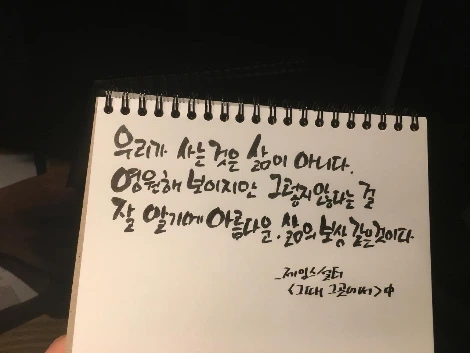 우리가 사는 것은 삶이 아니다.
영원해 보이지만 그렇지않다는 걸
잘 알기에 아름다운, 삶의 보상 같은것이다
_제임스설터
<그때 그곳에서>中